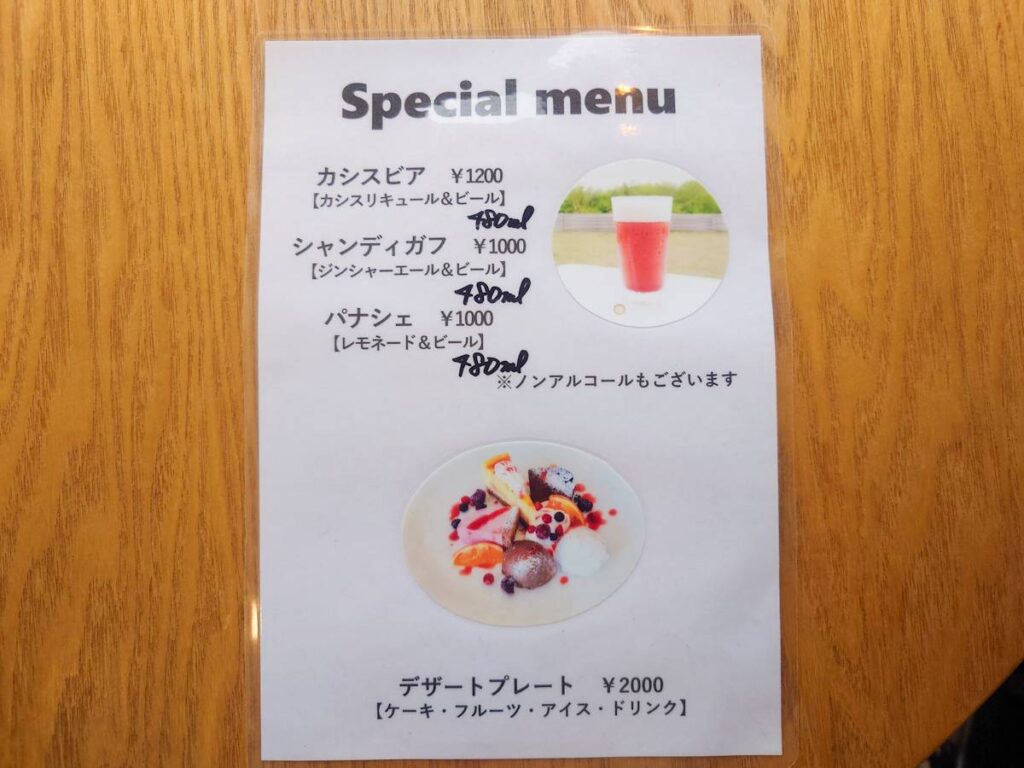 Special menu
カシスビア ￥1200
【カシスリキュール＆ビール】
480ml
シャンディガフ ￥1000
【ジンシャーエール＆ビール】
480ml
パナシェ ￥1000
【レモネード＆ビール】
480ml
※ノンアルコールもございます
デザートプレート ￥2000
【ケーキ・フルーツ・アイス・ドリンク】